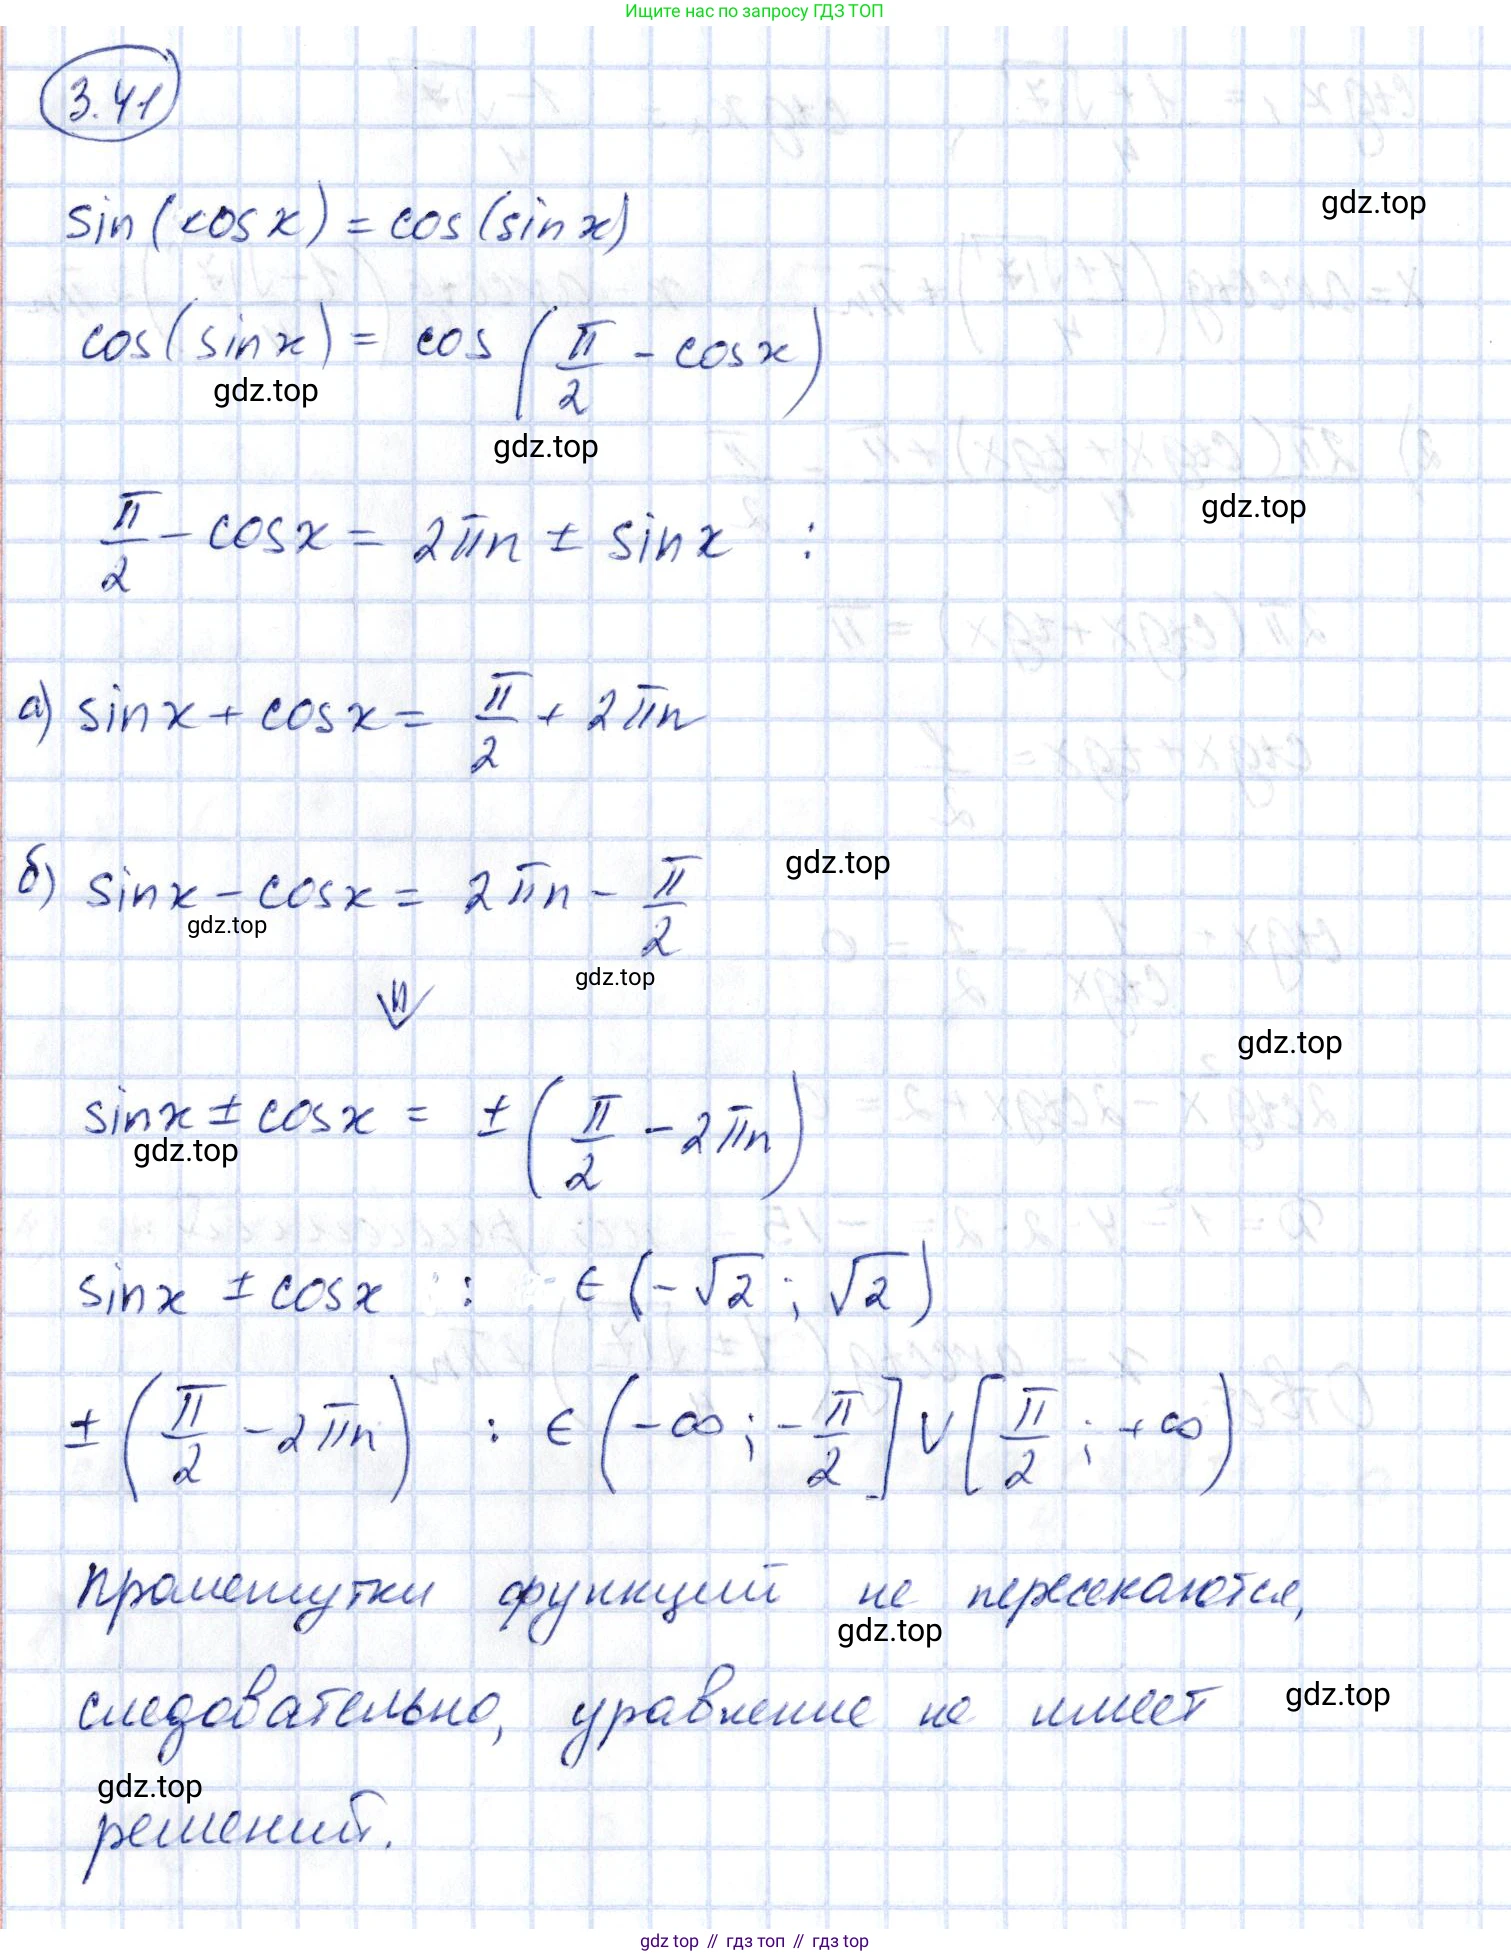 Ищите нас по запросу ГДЗ ТОП
3.41
gdz.top
sin(cosx) = cos(sinx)
cos(sinx) = cos(π/2 - cosx)
gdz.top
gdz.top
π/2 - cosx = 2πn ± sinx :
gdz.top
а) sinx + cosx = π/2 + 2πn
gdz.top
б) sinx - cosx = 2πn - π/2
gdz.top
gdz.top
⇓
gdz.top
sinx ± cosx = ± (π/2 - 2πn)
gdz.top
sinx ± cosx : ∈ (-√2 ; √2)
± (π/2 - 2πn) : ∈ (-∞ ; -π/2] ∪ [π/2 ; +∞)
промежутки функций не пересекаются,
gdz.top
следовательно, уравнение не имеет
gdz.top
gdz.top
решений.
gdz top // гдз топ // гдз top